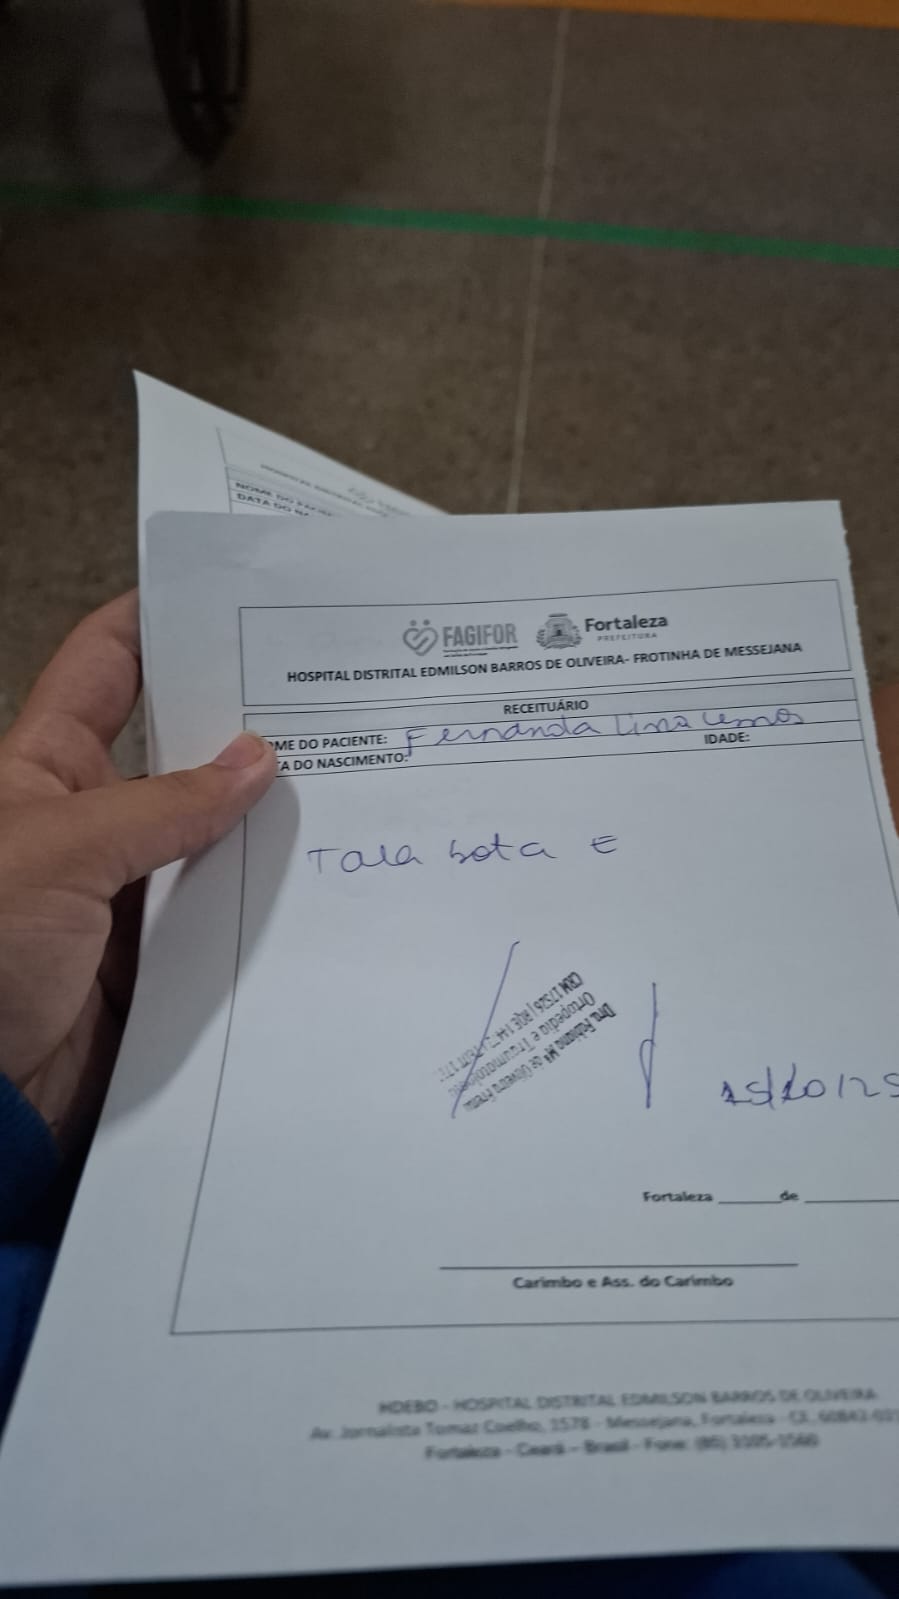 NOME DO PACIENTE
DATA DO NA
FAGIFOR
Fortaleza
PREFEITURA
HOSPITAL DISTRITAL EDMILSON BARROS DE OLIVEIRA- FROTINHA DE MESSEJANA
RECEITUÁRIO
OME DO PACIENTE: Fernanda Lima Lemos
TA DO NASCIMENTO: IDADE:
Tala bota E
Ortopedia e Traumatologia
CRM 17526 | RQE
15/10/25
Fortaleza ______de
Carimbo e Ass. do Carimbo
HDEBO - HOSPITAL DISTRITAL EDMILSON BARROS DE OLIVEIRA
Av. Jornalista Tomaz Coelho, 1578 - Messejana, Fortaleza - CE,
Fortaleza - Ceará - Brasil - Fone: (85)